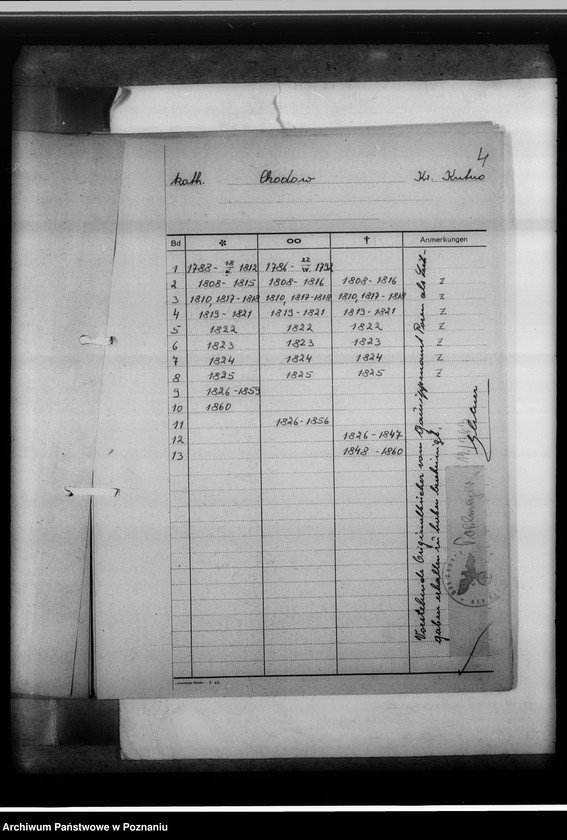 4
kath. Chodow Kr. Kutno
Bd * ∞ † Anmerkungen
1 1788- 18/ 1812 1786- 22/IV. 1792
2 1808- 1815 1808- 1816 1808- 1816 Z
3 1810, 1817-1818 1810, 1817-1818 1810, 1817-1818 Z
4 1819-1821 1819-1821 1819-1821 Z
5 1822 1822 1822 Z
6 1823 1823 1823 Z
7 1824 1824 1824 Z
8 1825 1825 1825 Z
9 1826-1859
10 1860
11 1826-1856
12 1826-1847
13 1848-1860
Vorstehende Originalbücher vom Gausippenamt Posen als Leih-
gaben erhalten zu haben bescheinigt.
Archiwum Państwowe w Poznaniu